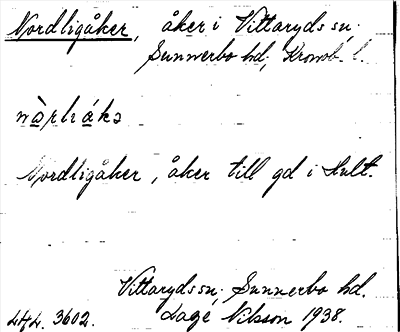 Nordligåker, åker i Vittaryds sn;
Sunnerbo hd; Kronob. l.
Nordligåker, åker till gd i Hult.
Vittaryds sn; Sunnerbo hd.
3602. Lage Nilsson 1938.